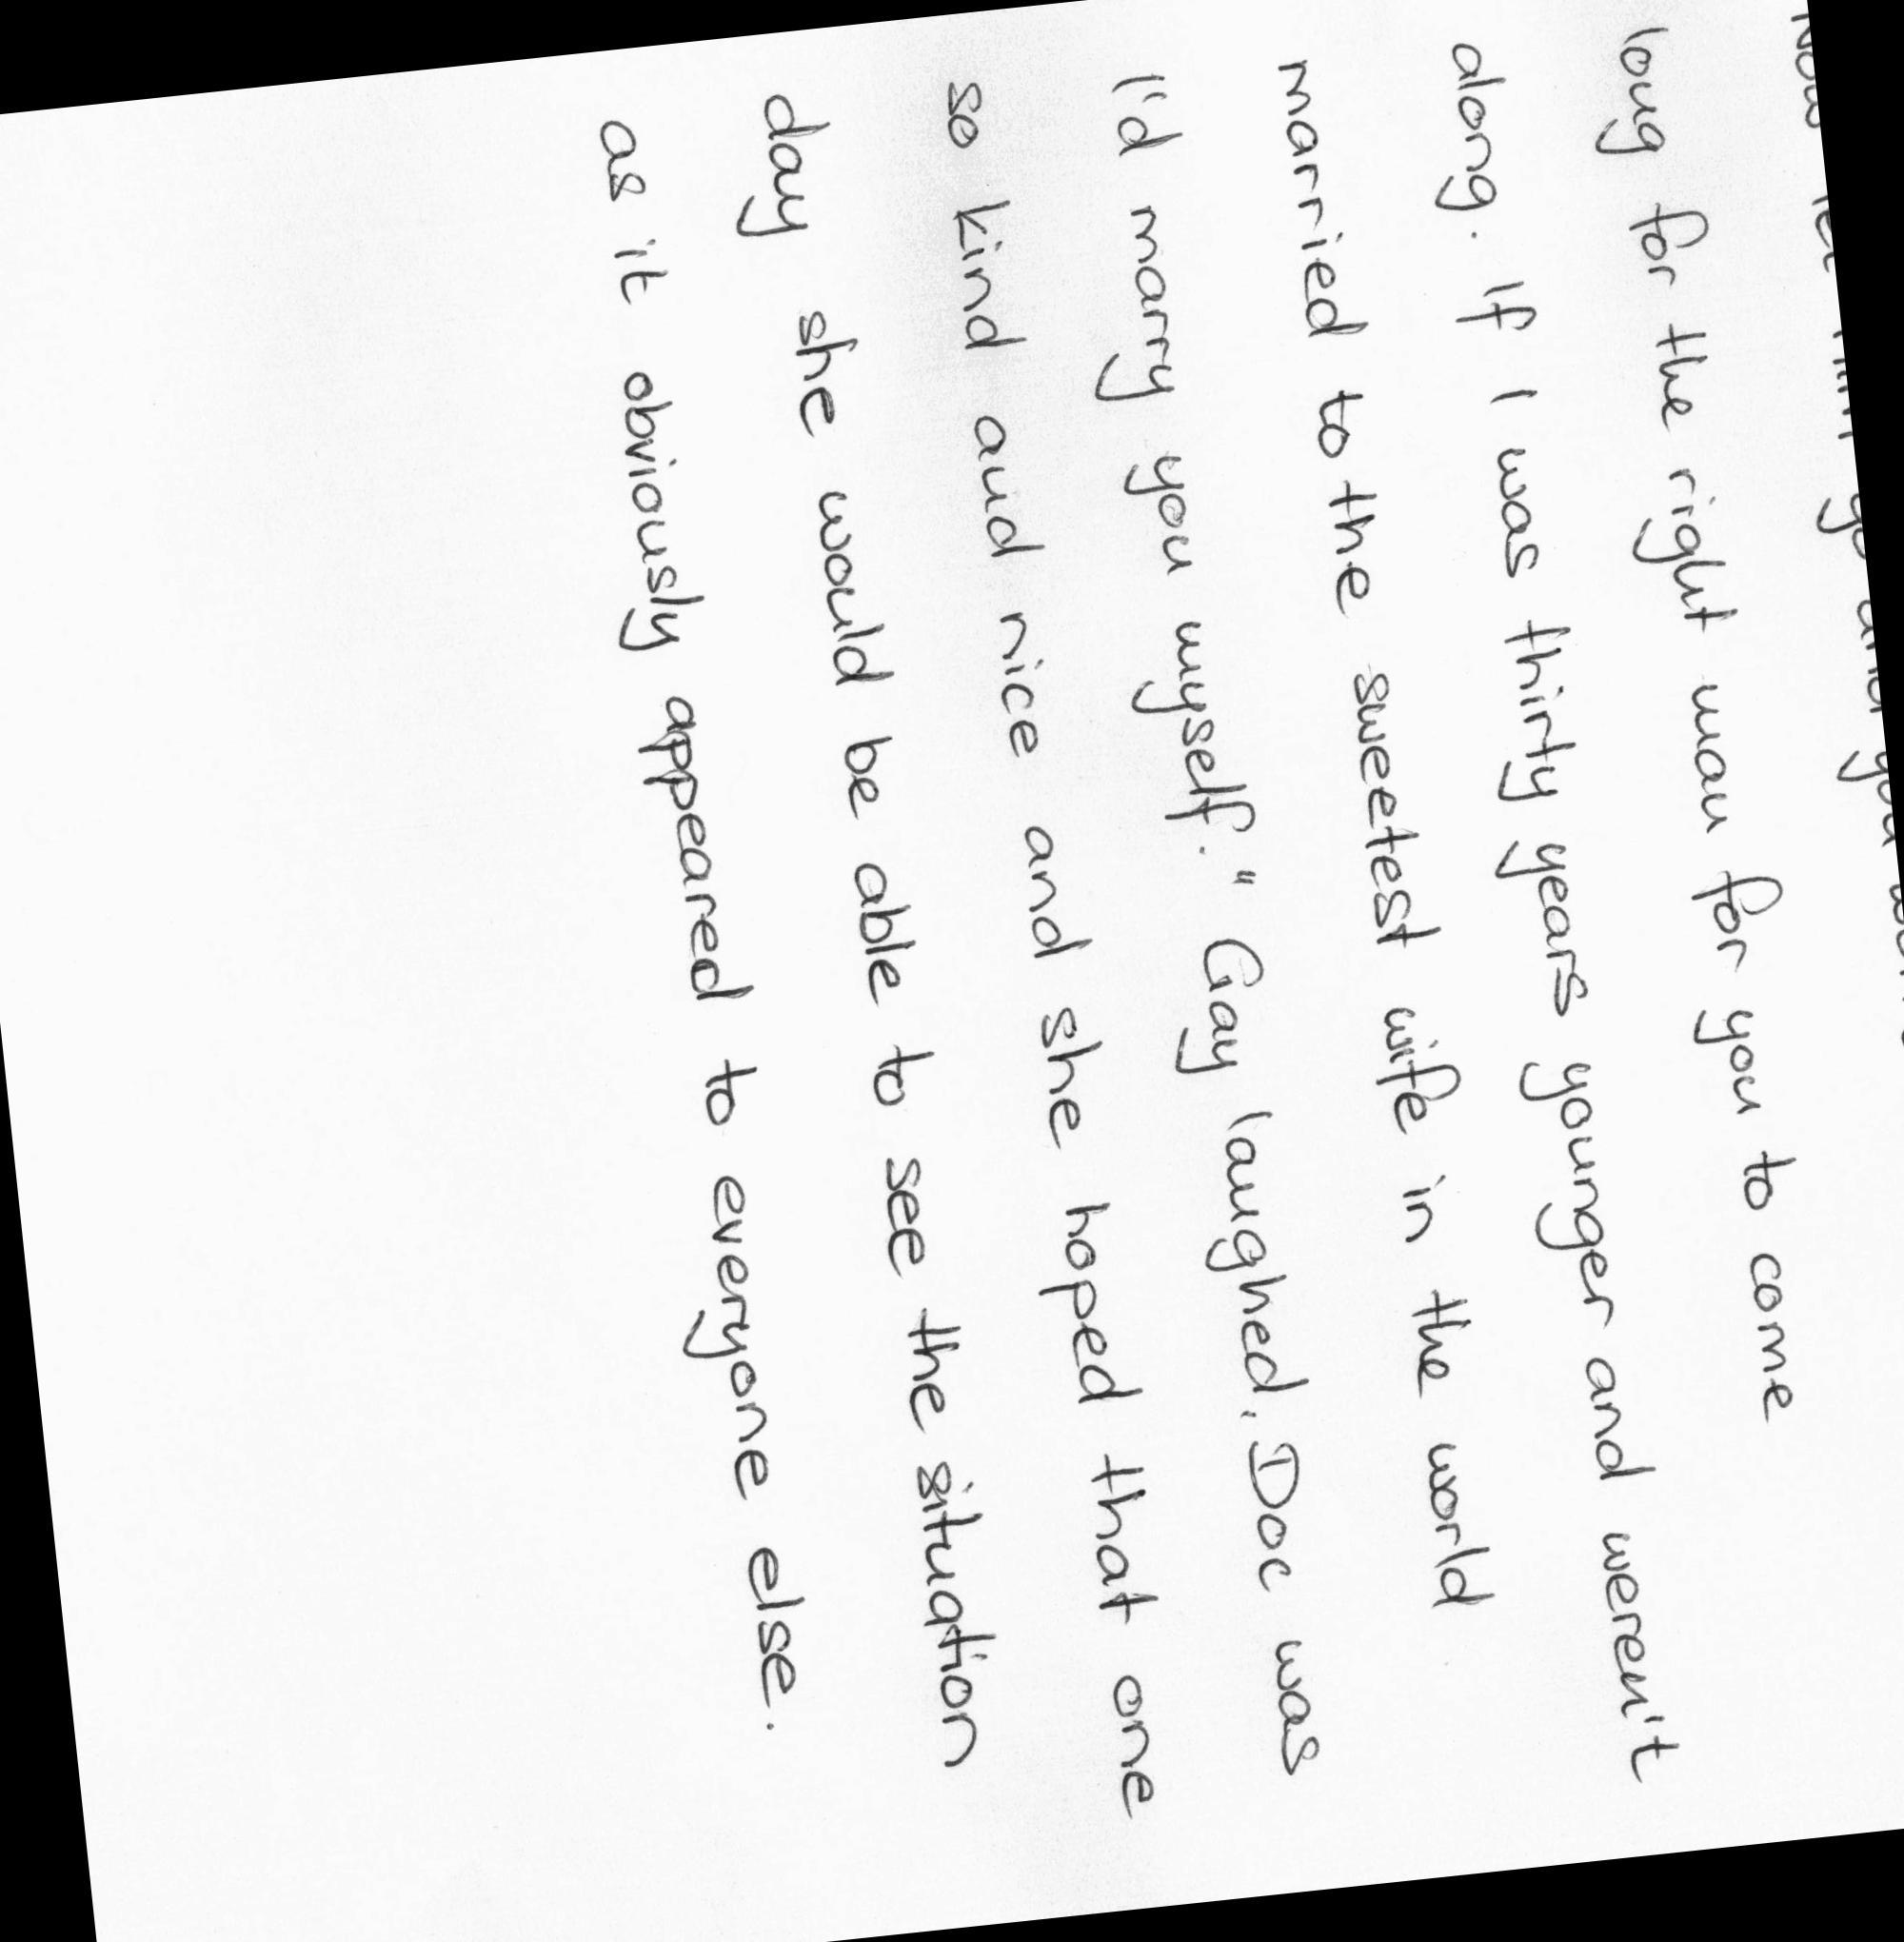 long for the right man for you to come
along. If I was thirty years younger and weren't
married to the sweetest wife in the world
I'd marry you myself." Gay laughed. Doc was
so kind and nice and she hoped that one
day she would be able to see the situation
as it obviously appeared to everyone else.